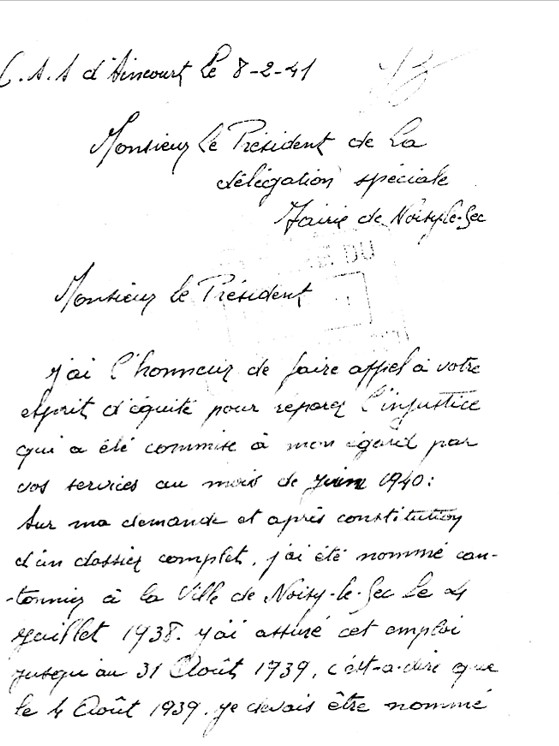 C.S.S d'Aincourt le 8-2-41
Monsieur le Président de la
délégation spéciale
Mairie de Noisy-le-Sec
DU
Monsieur le Président
j'ai l'honneur de faire appel à votre
esprit d'équité pour reparer l'injustice
qui a été commise à mon égard par
vos services au mois de juin 1940:
Sur ma demande et après constitution
d'un dossier complet, j'ai été nommé can-
-tonnier à la Ville de Noisy-le-Sec le 4
juillet 1938. j'ai assuré cet emploi
jusqu'au 31 Août 1939, c'est-a-dire que
le 4 Août 1939. je devais être nommé